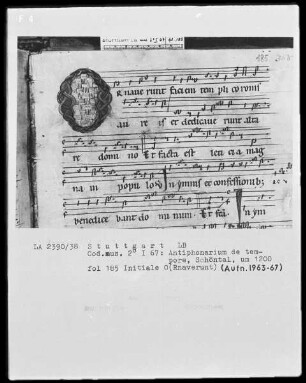 185
Rnave runt faciem tem pli coroni
au re is et dedicave runt alta
re domi no Et facta est leti cia mag
na in popu lo In ymnis et confessionib;
benedice bant do mi num. Et fac In ym
LA 2390/38 Stuttgart LB
Cod.mus. 2° I 67: Antiphonarium de tem-
pore, Schöntal, um 1200
fol 185 Initiale O(Rnaverunt) (Aufn.1963-67)